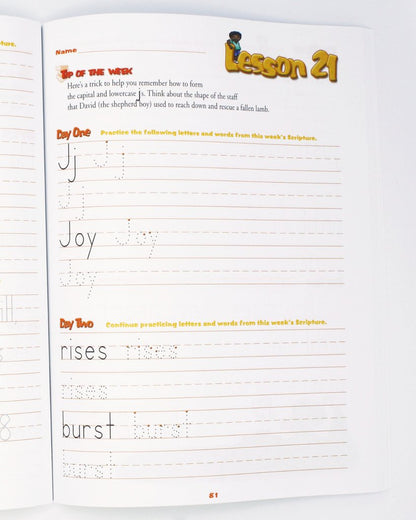 Name
Lesson 21
Tip of the Week
Here's a trick to help you remember how to form
the capital and lowercase Js. Think about the shape of the staff
that David (the shepherd boy) used to reach down and rescue a fallen lamb.
Day One Practice the following letters and words from this week's Scripture.
Jj Jj
Jj
Joy Joy
Joy
Day Two Continue practicing letters and words from this week's Scripture.
rises rises
rises
burst burst
burst
51